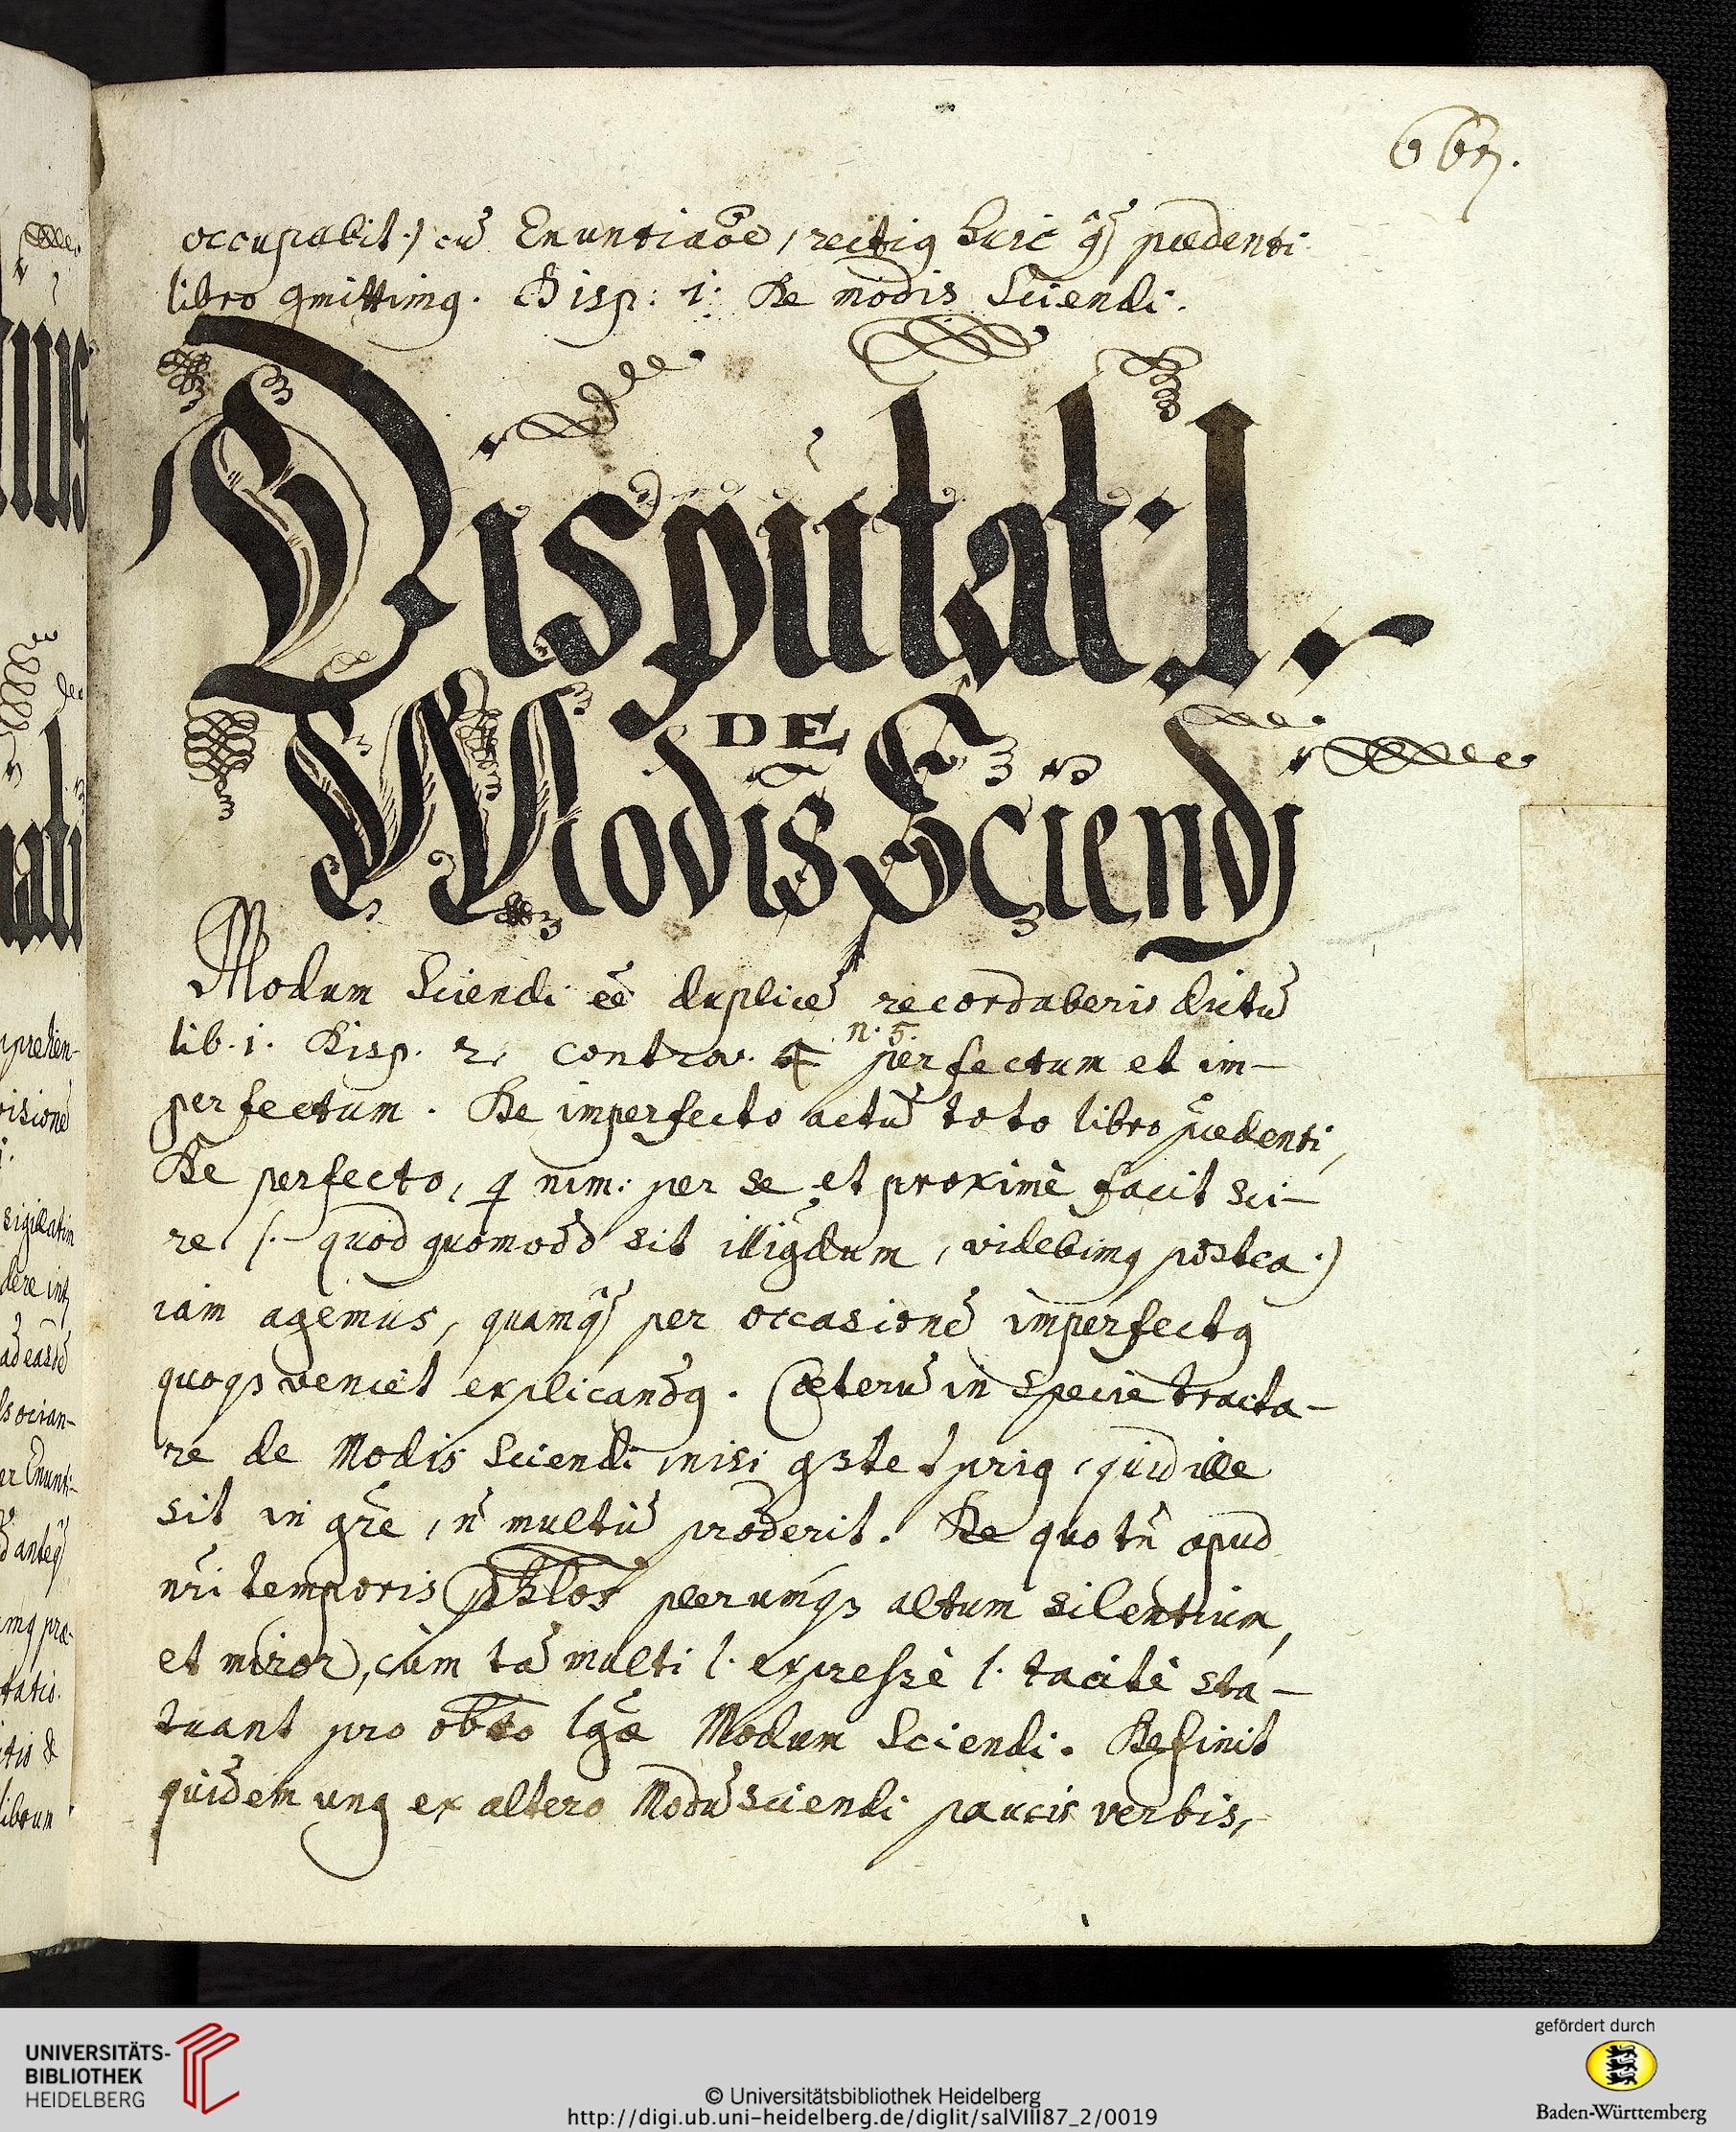 667.
occupabit.) cũ Enuntiaõe, rectiq huic q̃ p̃cedenti
libro qmittimq. Disp: 1: De modis Sciendi.
Disputat: I.
DE
Modis Sciendi
Modum Sciendi eẽ duplicẽ recordaberis dictũ
n. 5.
lib. 1. Disp. 2. controv. 4 perfectum et im-
perfectum. De imperfecto actũ toto libro p̃cedenti,
De perfecto, q nim: per se et proximè facit sci-
re (.- quod quomodõ sit illigdum, videbimq postea.)
iam agemus, quamq̃ per occasionẽ imperfectq
quoqꝫ veniet explicandq. Cæterũ in specie tracta-
re de Modis Sciendi, nisi priq, quid ille
sit in gr̃e, ñ multũ proderit. De quo tñ apud
nr̃i temporis Phlos plerumqꝫ altum silentium,
et miror, cùm tã multi l. expressè l. tacitè sta-
tuant pro obto Lgæ Modum Sciendi. Definit
quidem unq ex altero Modũ sciendi paucis verbis,
prehen-
visionẽ
sigillatim
ad easdẽ
socian-
er Enunti-
d anteq̃
mq præ-
tatis.
itis &
librum
UNIVERSITÄTS-
BIBLIOTHEK
HEIDELBERG
© Universitätsbibliothek Heidelberg
http://digi.ub.uni-heidelberg.de/diglit/salVIII87_2/0019
gefördert durch
Baden-Württemberg